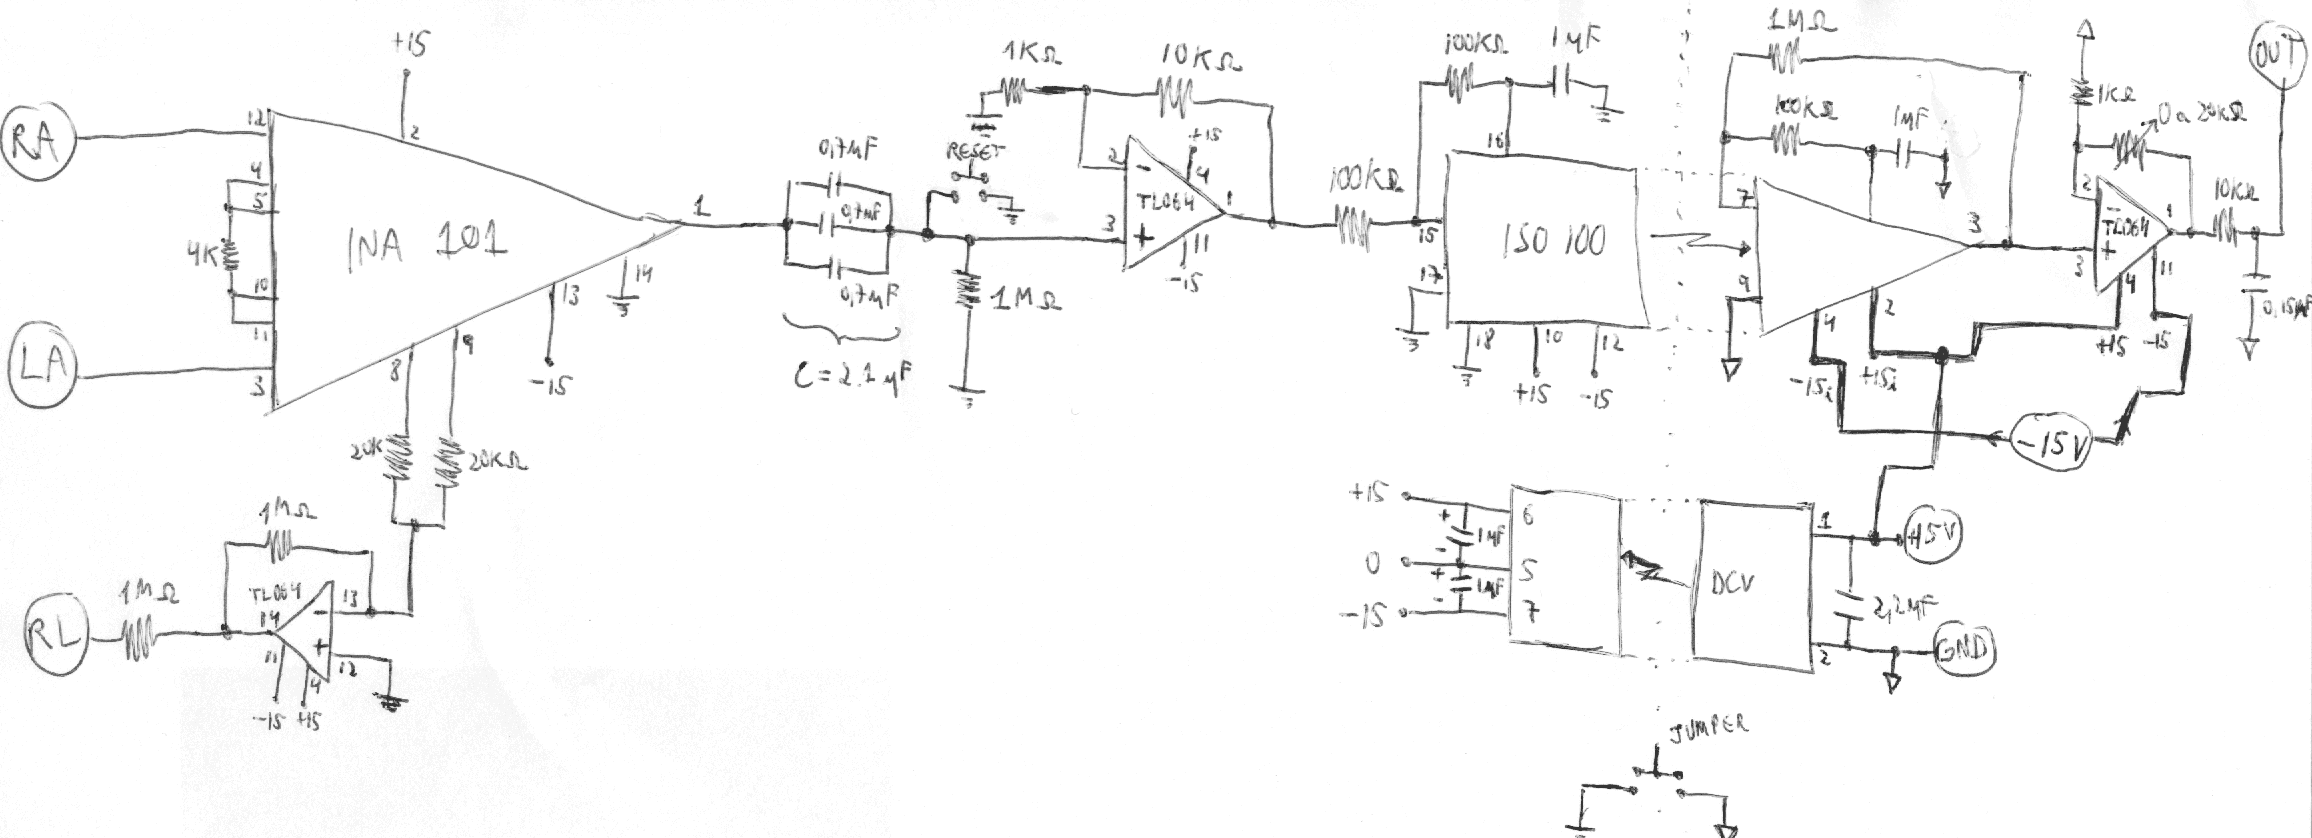 RA
+15
12
2
4
5
4K
INA 101
1
10
11
14
13
LA
3
8
9
-15
20K
20KΩ
1MΩ
TL064
13
14
RL
1MΩ
-
+
11
4
12
-15
+15
0,7μF
0,7μF
0,7μF
C = 2.1 μF
RESET
1KΩ
10KΩ
2
+15
-
4
TL064
1
3
+
11
-15
1MΩ
100KΩ
100KΩ
1μF
16
15
ISO 100
17
18
10
12
+15
-15
1MΩ
100KΩ
1μF
7
3
9
4
2
-15i
+15i
1KΩ
0 a 20KΩ
2
-
TL064
1
+
3
4
11
+15
-15
10KΩ
OUT
0,15μF
-15V
+15
6
+
1μF
-
0
5
+
1μF
-
-15
7
DCV
1
+15V
2,2μF
2
GND
JUMPER